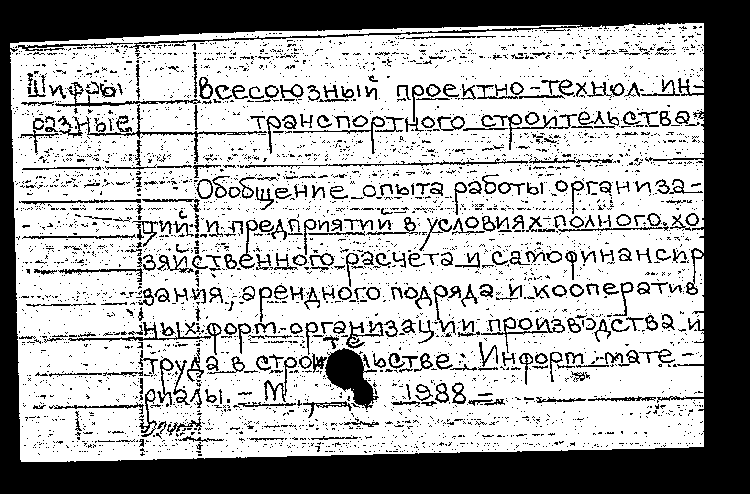 Шифры
разные
Всесоюзный проектно-технол. ин-
транспортного строительства
Обобщение опыта работы организа-
ций и предприятий в условиях полного хо-
зяйственного расчета и самофинансир
вания, арендного подряда и кооператив
ных форм организации производства и
труда в строительстве: Информ. мате-
риалы. - М , 1988 -